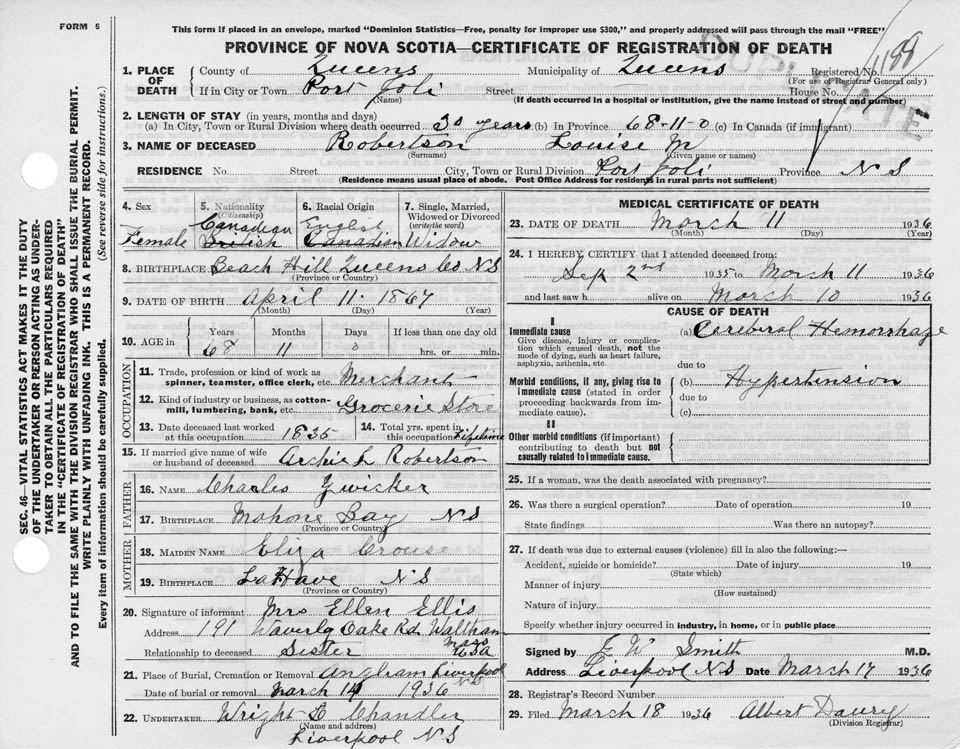 FORM 6
This form if placed in an envelope, marked "Dominion Statistics—Free, penalty for improper use $300," and properly addressed will pass through the mail "FREE"
PROVINCE OF NOVA SCOTIA—CERTIFICATE OF REGISTRATION OF DEATH
DUPLICATE
1. PLACE OF DEATH
County of Queens Municipality of Queens Registered No. 1188
(For use of Registrar General only)
If in City or Town Port Joli Street House No.
(Name) (If death occurred in a hospital or institution, give the name instead of street and number)
2. LENGTH OF STAY (in years, months and days)
(a) In City, Town or Rural Division where death occurred 30 years (b) In Province 68-11-0 (c) In Canada (if immigrant)
3. NAME OF DECEASED Robertson Louise M
(Surname) (Given name or names)
RESIDENCE No. Street City, Town or Rural Division Port Joli Province N S
(Residence means usual place of abode. Post Office Address for residents in rural parts not sufficient)
4. Sex Female
5. Nationality (Citizenship) Canadian British
6. Racial Origin English Canadian
7. Single, Married, Widowed or Divorced (write the word) Widow
8. BIRTHPLACE Beach Hill Queens Co N S
(Province or Country)
9. DATE OF BIRTH April 11. 1867
(Month) (Day) (Year)
10. AGE in Years Months Days If less than one day old
68 11 0 hrs. or min.
OCCUPATION
11. Trade, profession or kind of work as spinner, teamster, office clerk, etc. Merchant
12. Kind of industry or business, as cotton-mill, lumbering, bank, etc. Grocerie Store
13. Date deceased last worked at this occupation 1835
14. Total yrs. spent in this occupation Lifetime
15. If married give name of wife or husband of deceased Archie L Robertson
FATHER
16. NAME Charles Zwicker
17. BIRTHPLACE Mahone Bay N S
(Province or Country)
MOTHER
18. MAIDEN NAME Eliza Crouse
19. BIRTHPLACE LaHave N S
(Province or Country)
20. Signature of informant Mrs Ellen Ellis
Address 191 Waverly Oake Rd. Waltham Mass
Relationship to deceased Sister USA
21. Place of Burial, Cremation or Removal Anglham Liverpool NS
Date of burial or removal March 14 1936
22. UNDERTAKER Wright L Chandler
(Name and address)
Liverpool N S
MEDICAL CERTIFICATE OF DEATH
23. DATE OF DEATH March 11 1936
(Month) (Day) (Year)
24. I HEREBY CERTIFY that I attended deceased from:
Sep 2nd 1935 to March 11 1936
and last saw h alive on March 10 1936
CAUSE OF DEATH
I
Immediate cause (a) Cereberal Hemorrhage
Give disease, injury or complication which caused death, not the mode of dying, such as heart failure, asphyxia, asthenia, etc.
due to
Morbid conditions, if any, giving rise to immediate cause (stated in order proceeding backwards from immediate cause).
(b) Hypertension
due to
(c)
II
Other morbid conditions (if important) contributing to death but not causally related to immediate cause.
25. If a woman, was the death associated with pregnancy?
26. Was there a surgical operation? Date of operation 19
State findings Was there an autopsy?
27. If death was due to external causes (violence) fill in also the following:—
Accident, suicide or homicide? Date of injury 19
(State which)
Manner of injury
(How sustained)
Nature of injury
Specify whether injury occurred in industry, in home, or in public place
Signed by J W Smith M.D.
Address Liverpool N S Date March 17 1936
28. Registrar's Record Number
29. Filed March 18 1936 Albert Daury
(Division Registrar)
SEC. 46—VITAL STATISTICS ACT MAKES IT THE DUTY
OF THE UNDERTAKER OR PERSON ACTING AS UNDER-
TAKER TO OBTAIN ALL THE PARTICULARS REQUIRED
IN THE "CERTIFICATE OF REGISTRATION OF DEATH"
AND TO FILE THE SAME WITH THE DIVISION REGISTRAR WHO SHALL ISSUE THE BURIAL PERMIT.
WRITE PLAINLY WITH UNFADING INK. THIS IS A PERMANENT RECORD.
Every item of information should be carefully supplied. (See reverse side for instructions.)